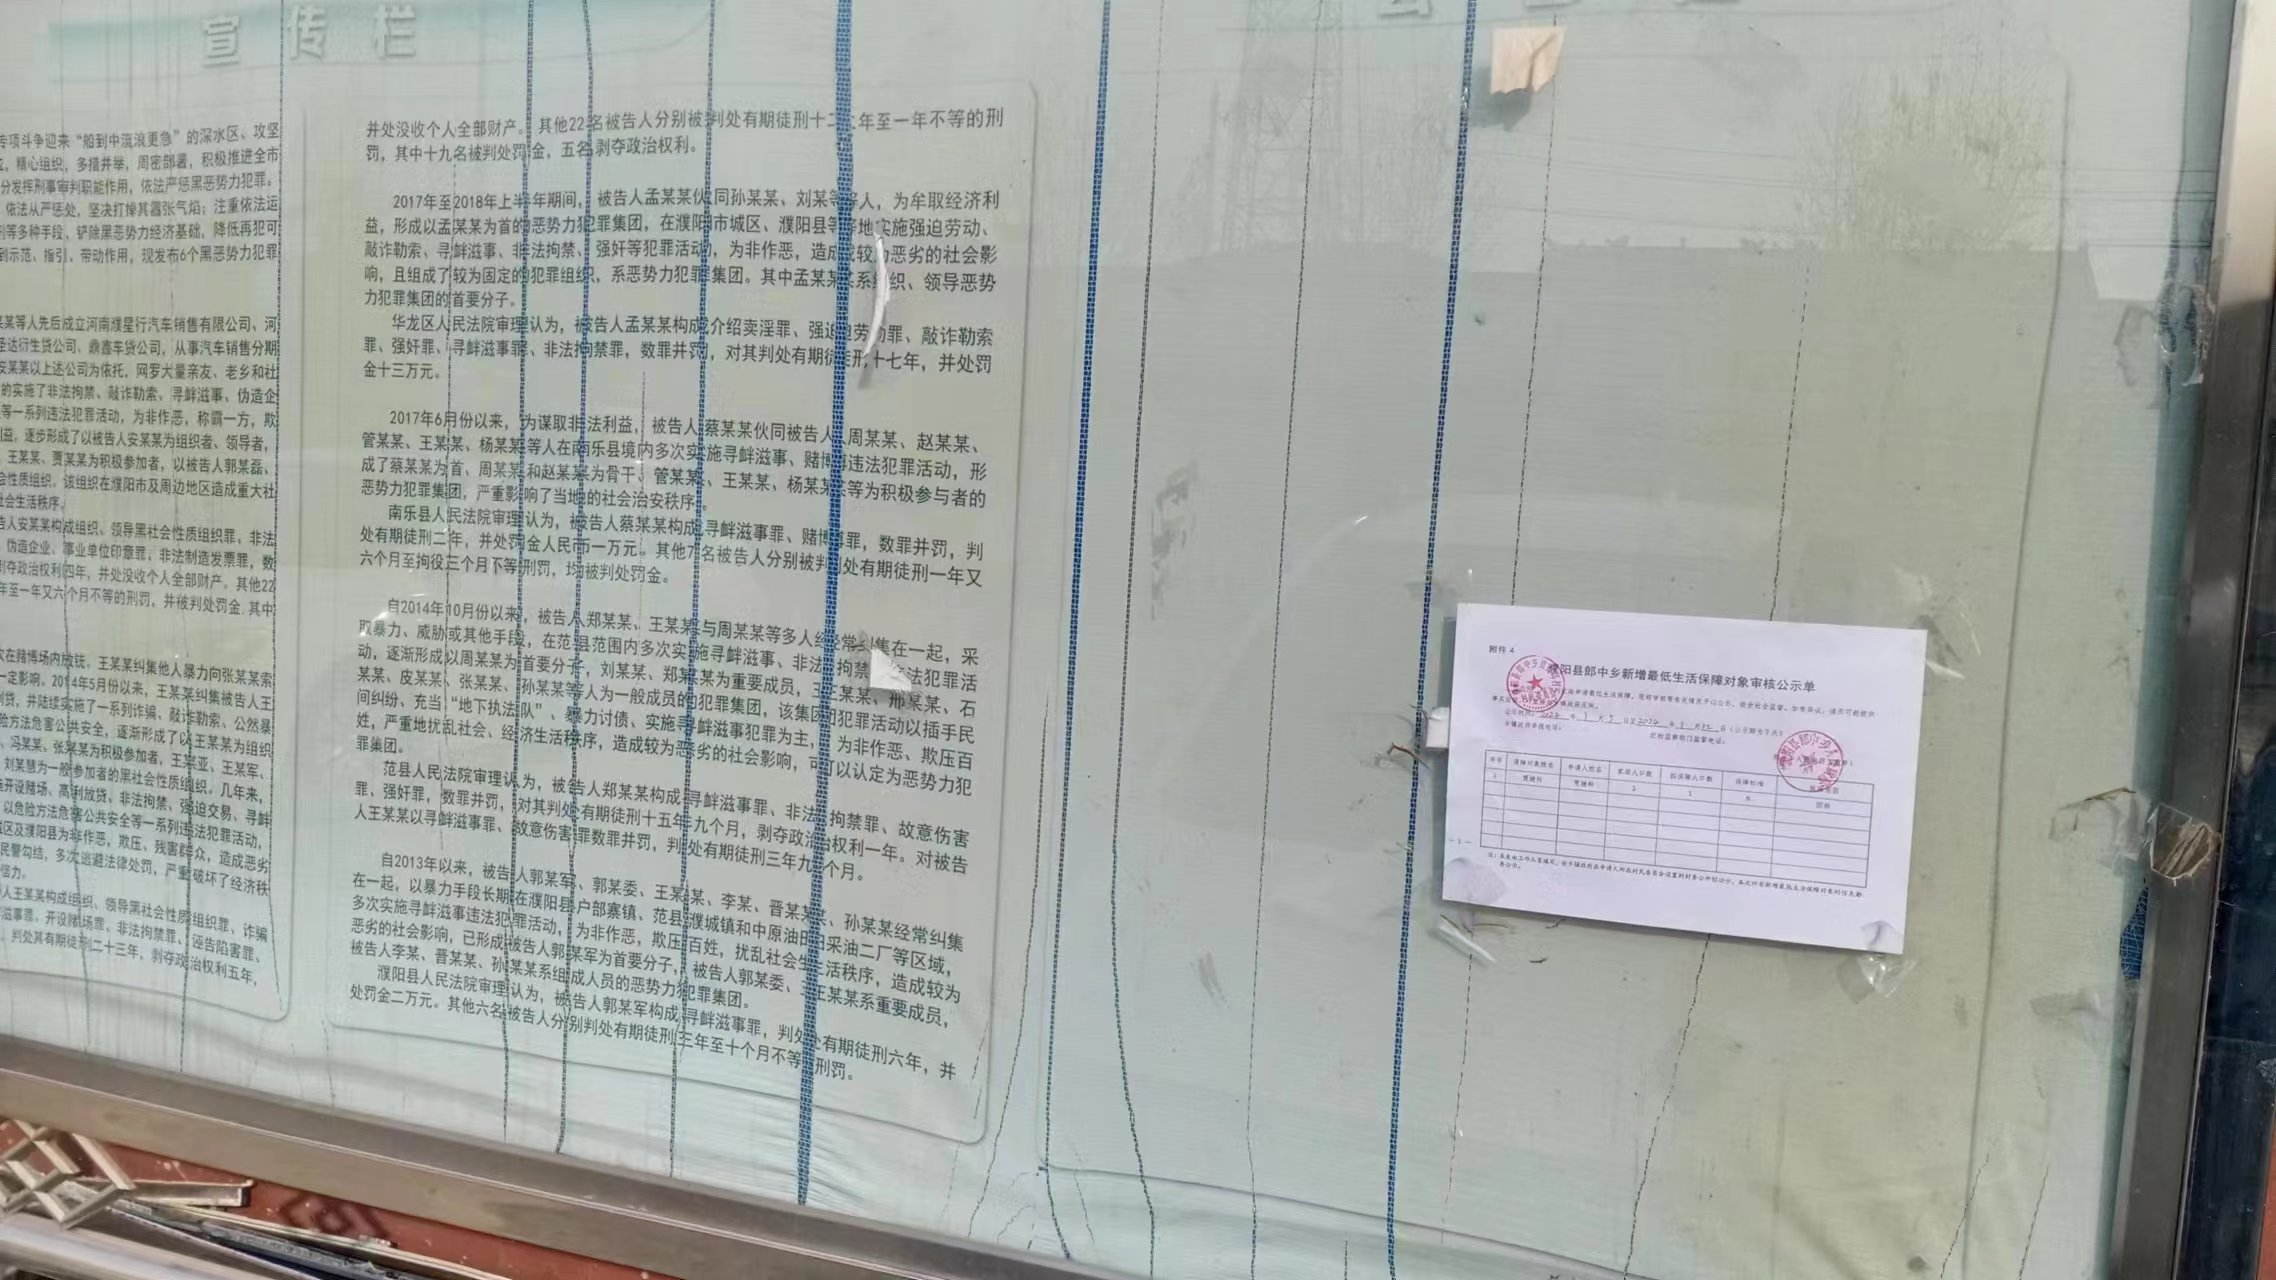 宣传栏
专项斗争迎来“船到中流浪更急”的深水区、攻坚
，精心组织，多措并举，周密部署，积极推进全市
分发挥刑事审判职能作用，依法严惩黑恶势力犯罪。
依法从严惩处，坚决打掉其嚣张气焰；注重依法运
等多种手段，铲除黑恶势力经济基础，降低再犯可
到示范、指引、带动作用，现发布6个黑恶势力犯罪
某某等人先后成立河南濮星行汽车销售有限公司、河
圣达衍生贷公司、鼎鑫车贷公司，从事汽车销售分期
安某某以上述公司为依托，网罗大量亲友、老乡和社
的实施了非法拘禁、敲诈勒索、寻衅滋事、伪造企
等一系列违法犯罪活动，为非作恶，称霸一方，欺
益，逐步形成了以被告人安某某为组织者、领导者，
王某某、贾某某为积极参加者，以被告人郭某磊、
会性质组织。该组织在濮阳市及周边地区造成重大社
社会生活秩序。
告人安某某构成组织、领导黑社会性质组织罪、非法
伪造企业、事业单位印章罪、非法制造发票罪，数
剥夺政治权利四年，并处没收个人全部财产。其他22
年至一年又六个月不等的刑罚，并被判处罚金，其中
次在赌博场内放钱。王某某纠集他人暴力向张某某索
一定影响。2014年5月份以来，王某某纠集被告人王
利贷，并陆续实施了一系列诈骗、敲诈勒索、公然暴
险方法危害公共安全，逐渐形成了以王某某为组织
、冯某某、张某某为积极参加者，王某亚、王某军、
刘某慧为一般参加者的黑社会性质组织。几年来，
施开设赌场、高利放贷、非法拘禁、强迫交易、寻衅
以危险方法危害公共安全等一系列违法犯罪活动，
城区及濮阳县为非作恶，欺压、残害群众，造成恶劣
民警勾结，多次逃避法律处罚，严重破坏了经济秩
信力。
人王某某构成组织、领导黑社会性质组织罪、诈骗
滋事罪、开设赌场罪、非法拘禁罪、诬告陷害罪、
，判处其有期徒刑二十三年，剥夺政治权利五年，
并处没收个人全部财产。其他22名被告人分别被判处有期徒刑十二年至一年不等的刑
罚，其中十九名被判处罚金，五名剥夺政治权利。
2017年至2018年上半年期间，被告人孟某某伙同孙某某、刘某等人，为牟取经济利
益，形成以孟某某为首的恶势力犯罪集团，在濮阳市城区、濮阳县等地实施强迫劳动、
敲诈勒索、寻衅滋事、非法拘禁、强奸等犯罪活动，为非作恶，造成较为恶劣的社会影
响，且组成了较为固定的犯罪组织，系恶势力犯罪集团。其中孟某某系组织、领导恶势
力犯罪集团的首要分子。
华龙区人民法院审理认为，被告人孟某某构成介绍卖淫罪、强迫劳动罪、敲诈勒索
罪、强奸罪、寻衅滋事罪、非法拘禁罪，数罪并罚，对其判处有期徒刑十七年，并处罚
金十三万元。
2017年6月份以来，为谋取非法利益，被告人蔡某某伙同被告人周某某、赵某某、
管某某、王某某、杨某某等人在南乐县境内多次实施寻衅滋事、赌博等违法犯罪活动，形
成了蔡某某为首、周某某和赵某某为骨干、管某某、王某某、杨某某等为积极参与者的
恶势力犯罪集团，严重影响了当地的社会治安秩序。
南乐县人民法院审理认为，被告人蔡某某构成寻衅滋事罪、赌博罪，数罪并罚，判
处有期徒刑二年，并处罚金人民币一万元。其他7名被告人分别被判处有期徒刑一年又
六个月至拘役三个月不等刑罚，均被判处罚金。
自2014年10月份以来，被告人郑某某、王某某与周某某等多人经常纠集在一起，采
取暴力、威胁或其他手段，在范县范围内多次实施寻衅滋事、非法拘禁等违法犯罪活
动，逐渐形成以周某某为首要分子，刘某某、郑某某为重要成员，王某某、邢某某、石
某某、皮某某、张某某、孙某某等人为一般成员的犯罪集团，该集团犯罪活动以插手民
间纠纷、充当“地下执法队”、暴力讨债、实施寻衅滋事犯罪为主，为非作恶、欺压百
姓，严重地扰乱社会、经济生活秩序，造成较为恶劣的社会影响，可以认定为恶势力犯
罪集团。
范县人民法院审理认为，被告人郑某某构成寻衅滋事罪、非法拘禁罪、故意伤害
罪、强奸罪，数罪并罚，对其判处有期徒刑十五年九个月，剥夺政治权利一年。对被告
人王某某以寻衅滋事罪、故意伤害罪数罪并罚，判处有期徒刑三年九个月。
自2013年以来，被告人郭某军、郭某委、王某某、李某、晋某某、孙某某经常纠集
在一起，以暴力手段长期在濮阳县户部寨镇、范县濮城镇和中原油田采油二厂等区域，
多次实施寻衅滋事违法犯罪活动，为非作恶，欺压百姓，扰乱社会生活秩序，造成较为
恶劣的社会影响，已形成被告人郭某军为首要分子，被告人郭某委、王某某系重要成员，
被告人李某、晋某某、孙某某系组成人员的恶势力犯罪集团。
濮阳县人民法院审理认为，被告人郭某军构成寻衅滋事罪，判处有期徒刑六年，并
处罚金二万元。其他六名被告人分别判处有期徒刑三年至十个月不等刑罚。
附件 4
濮阳县郎中乡新增最低生活保障对象审核公示单
公示时间：2024年1月5日至2024年1月12日（公示期为7天）
乡镇政府举报电话： 纪检监察部门监督电话：
序号 保障对象姓名 申请人姓名 家庭人口数 拟保障人口数 保障标准
1 1 因病
-1-